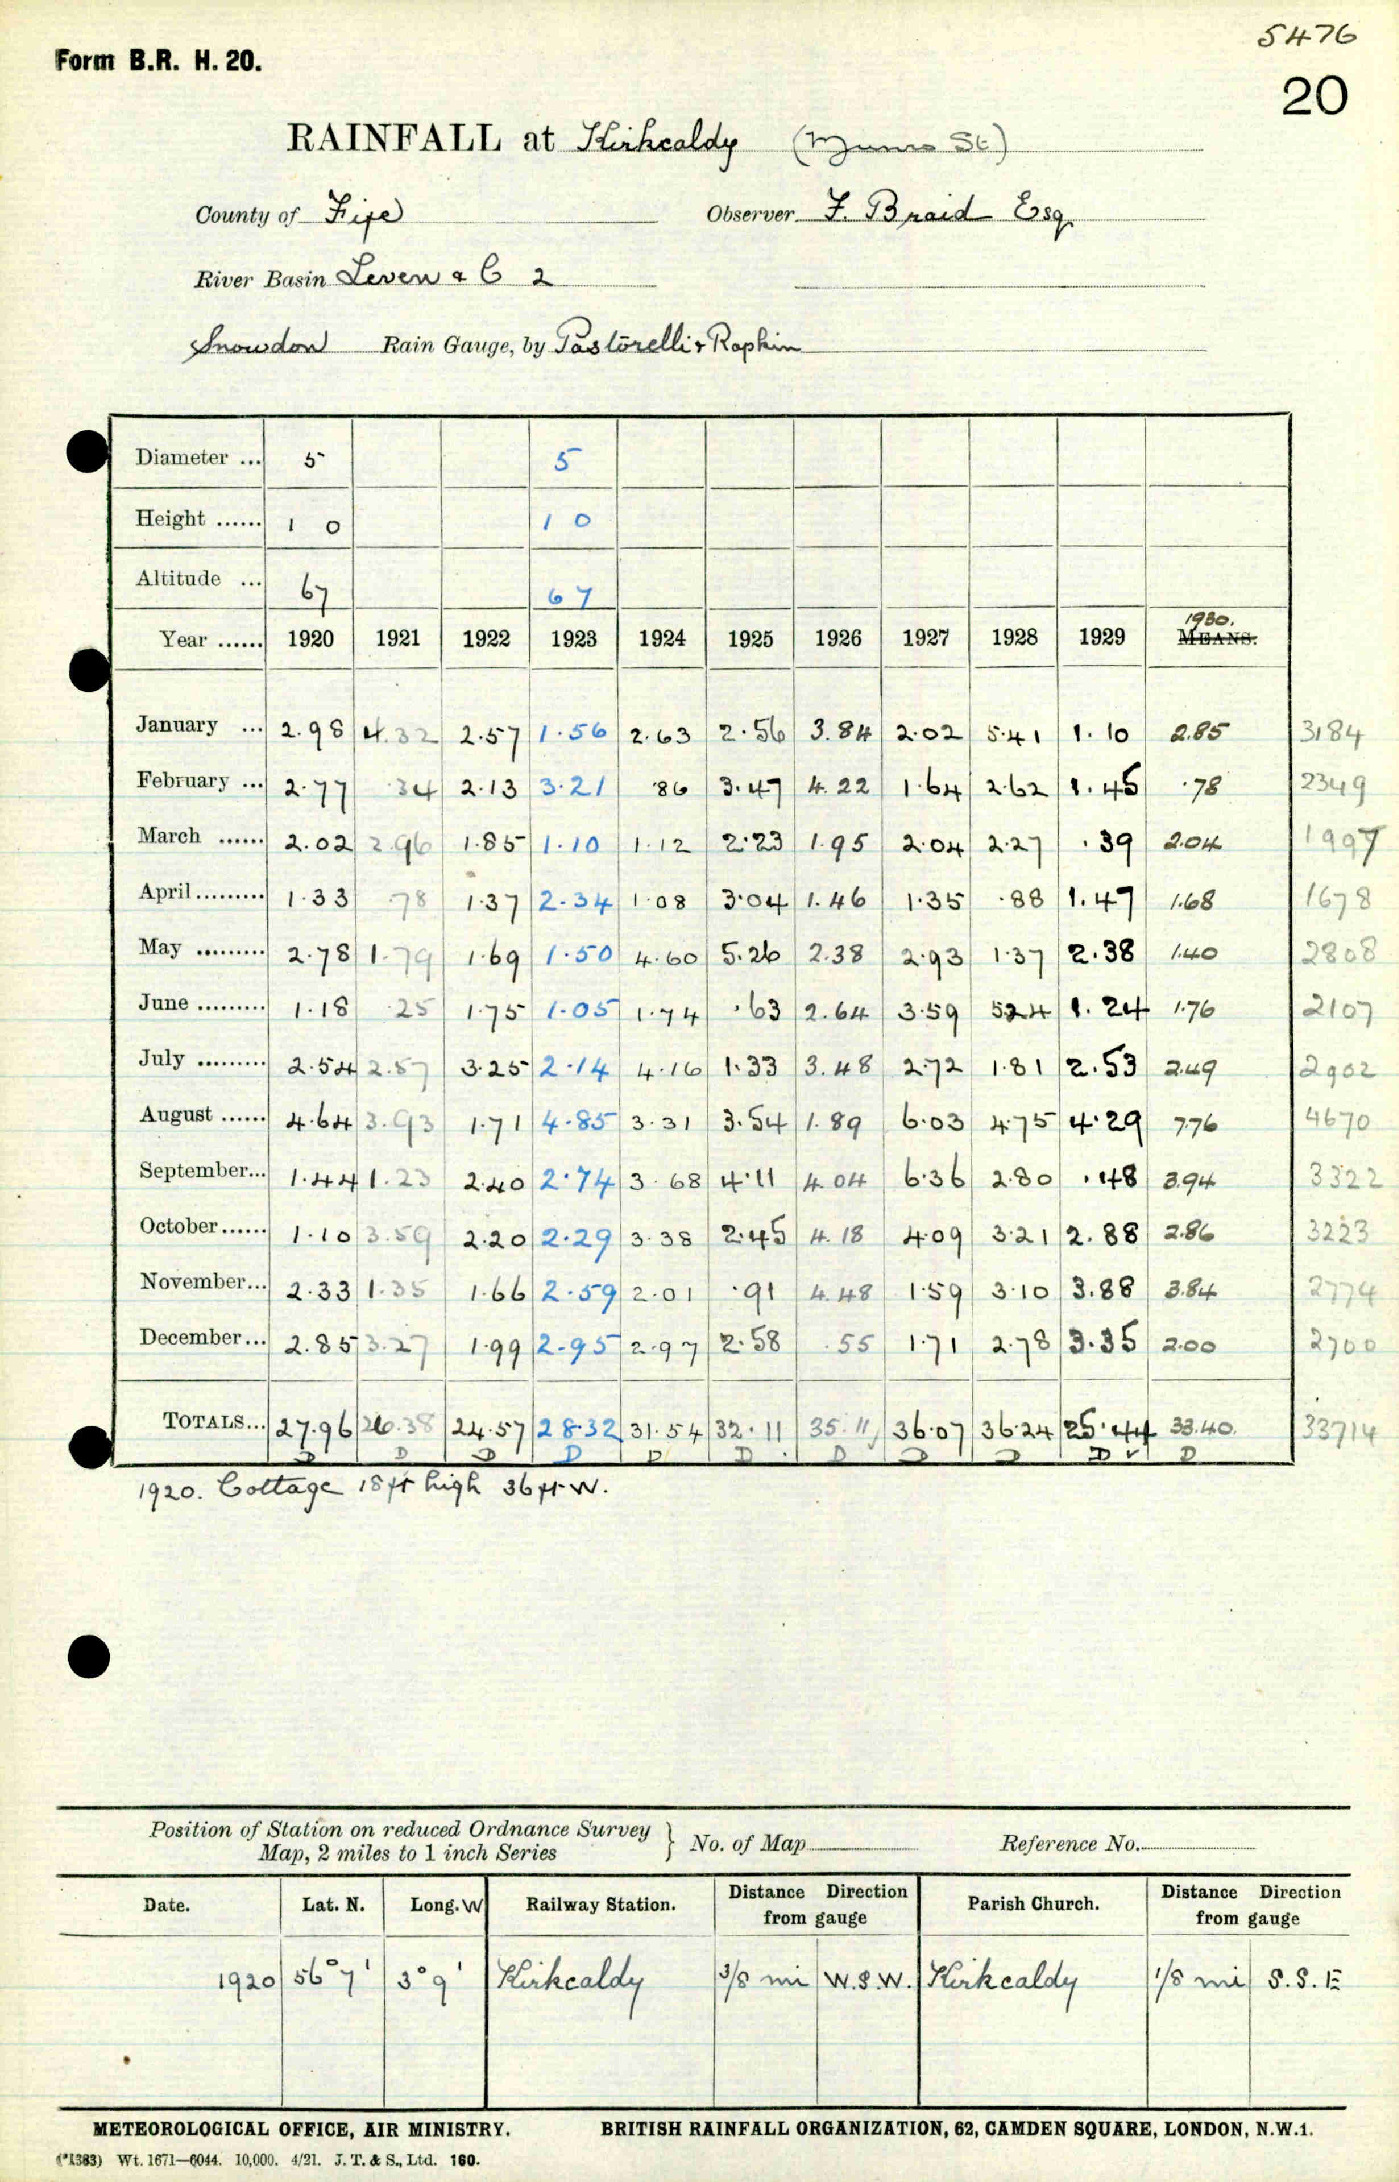 5476
Form B.R. H. 20.
20
RAINFALL at Kirkcaldy (Munro St)
County of Fife Observer F. Braid Esq
River Basin Leven & C 2
Snowdon Rain Gauge, by Pastorelli & Rapkin
Diameter ... 5 5
Height ...... 1 0 1 0
Altitude ... 67 67
1930.
Year ...... 1920 1921 1922 1923 1924 1925 1926 1927 1928 1929 MEANS.
January ... 2.98 4.32 2.57 1.56 2.63 2.56 3.84 2.02 5.41 1.10 2.85 3184
February ... 2.77 .34 2.13 3.21 .86 3.47 4.22 1.64 2.62 1.45 .78 2349
March ...... 2.02 2.96 1.85 1.10 1.12 2.23 1.95 2.04 2.27 .39 2.04 1997
April ......... 1.33 .78 1.37 2.34 1.08 3.04 1.46 1.35 .88 1.47 1.68 1678
May ......... 2.78 1.79 1.69 1.50 4.60 5.26 2.38 2.93 1.37 2.38 1.40 2808
June ......... 1.18 .25 1.75 1.05 1.74 .63 2.64 3.59 5.24 1.24 1.76 2107
July ......... 2.54 2.57 3.25 2.14 4.16 1.33 3.48 2.72 1.81 2.53 2.49 2902
August ...... 4.64 3.93 1.71 4.85 3.31 3.54 1.89 6.03 4.75 4.29 7.76 4670
September... 1.44 1.23 2.40 2.74 3.68 4.11 4.04 6.36 2.80 .48 3.94 3322
October...... 1.10 3.59 2.20 2.29 3.38 2.45 4.18 4.09 3.21 2.88 2.86 3223
November... 2.33 1.35 1.66 2.59 2.01 .91 4.48 1.59 3.10 3.88 3.84 2774
December... 2.85 3.27 1.99 2.95 2.97 2.58 .55 1.71 2.78 3.35 2.00 2700
TOTALS... 27.96 26.38 24.57 28.32 31.54 32.11 35.11 36.07 36.24 25.44 33.40 33714
D D D D D D D D D D D
1920. Cottage 18 ft high 36 ft W.
Position of Station on reduced Ordnance Survey
Map, 2 miles to 1 inch Series } No. of Map Reference No.
Date. Lat. N. Long. W Railway Station. Distance Direction from gauge Parish Church. Distance Direction from gauge
1920 56° 7' 3° 9' Kirkcaldy 3/8 mi W.S.W. Kirkcaldy 1/8 mi S.S.E
METEOROLOGICAL OFFICE, AIR MINISTRY. BRITISH RAINFALL ORGANIZATION, 62, CAMDEN SQUARE, LONDON, N.W.1.
(*1383) Wt. 1671—6044. 10,000. 4/21. J. T. & S., Ltd. 160.